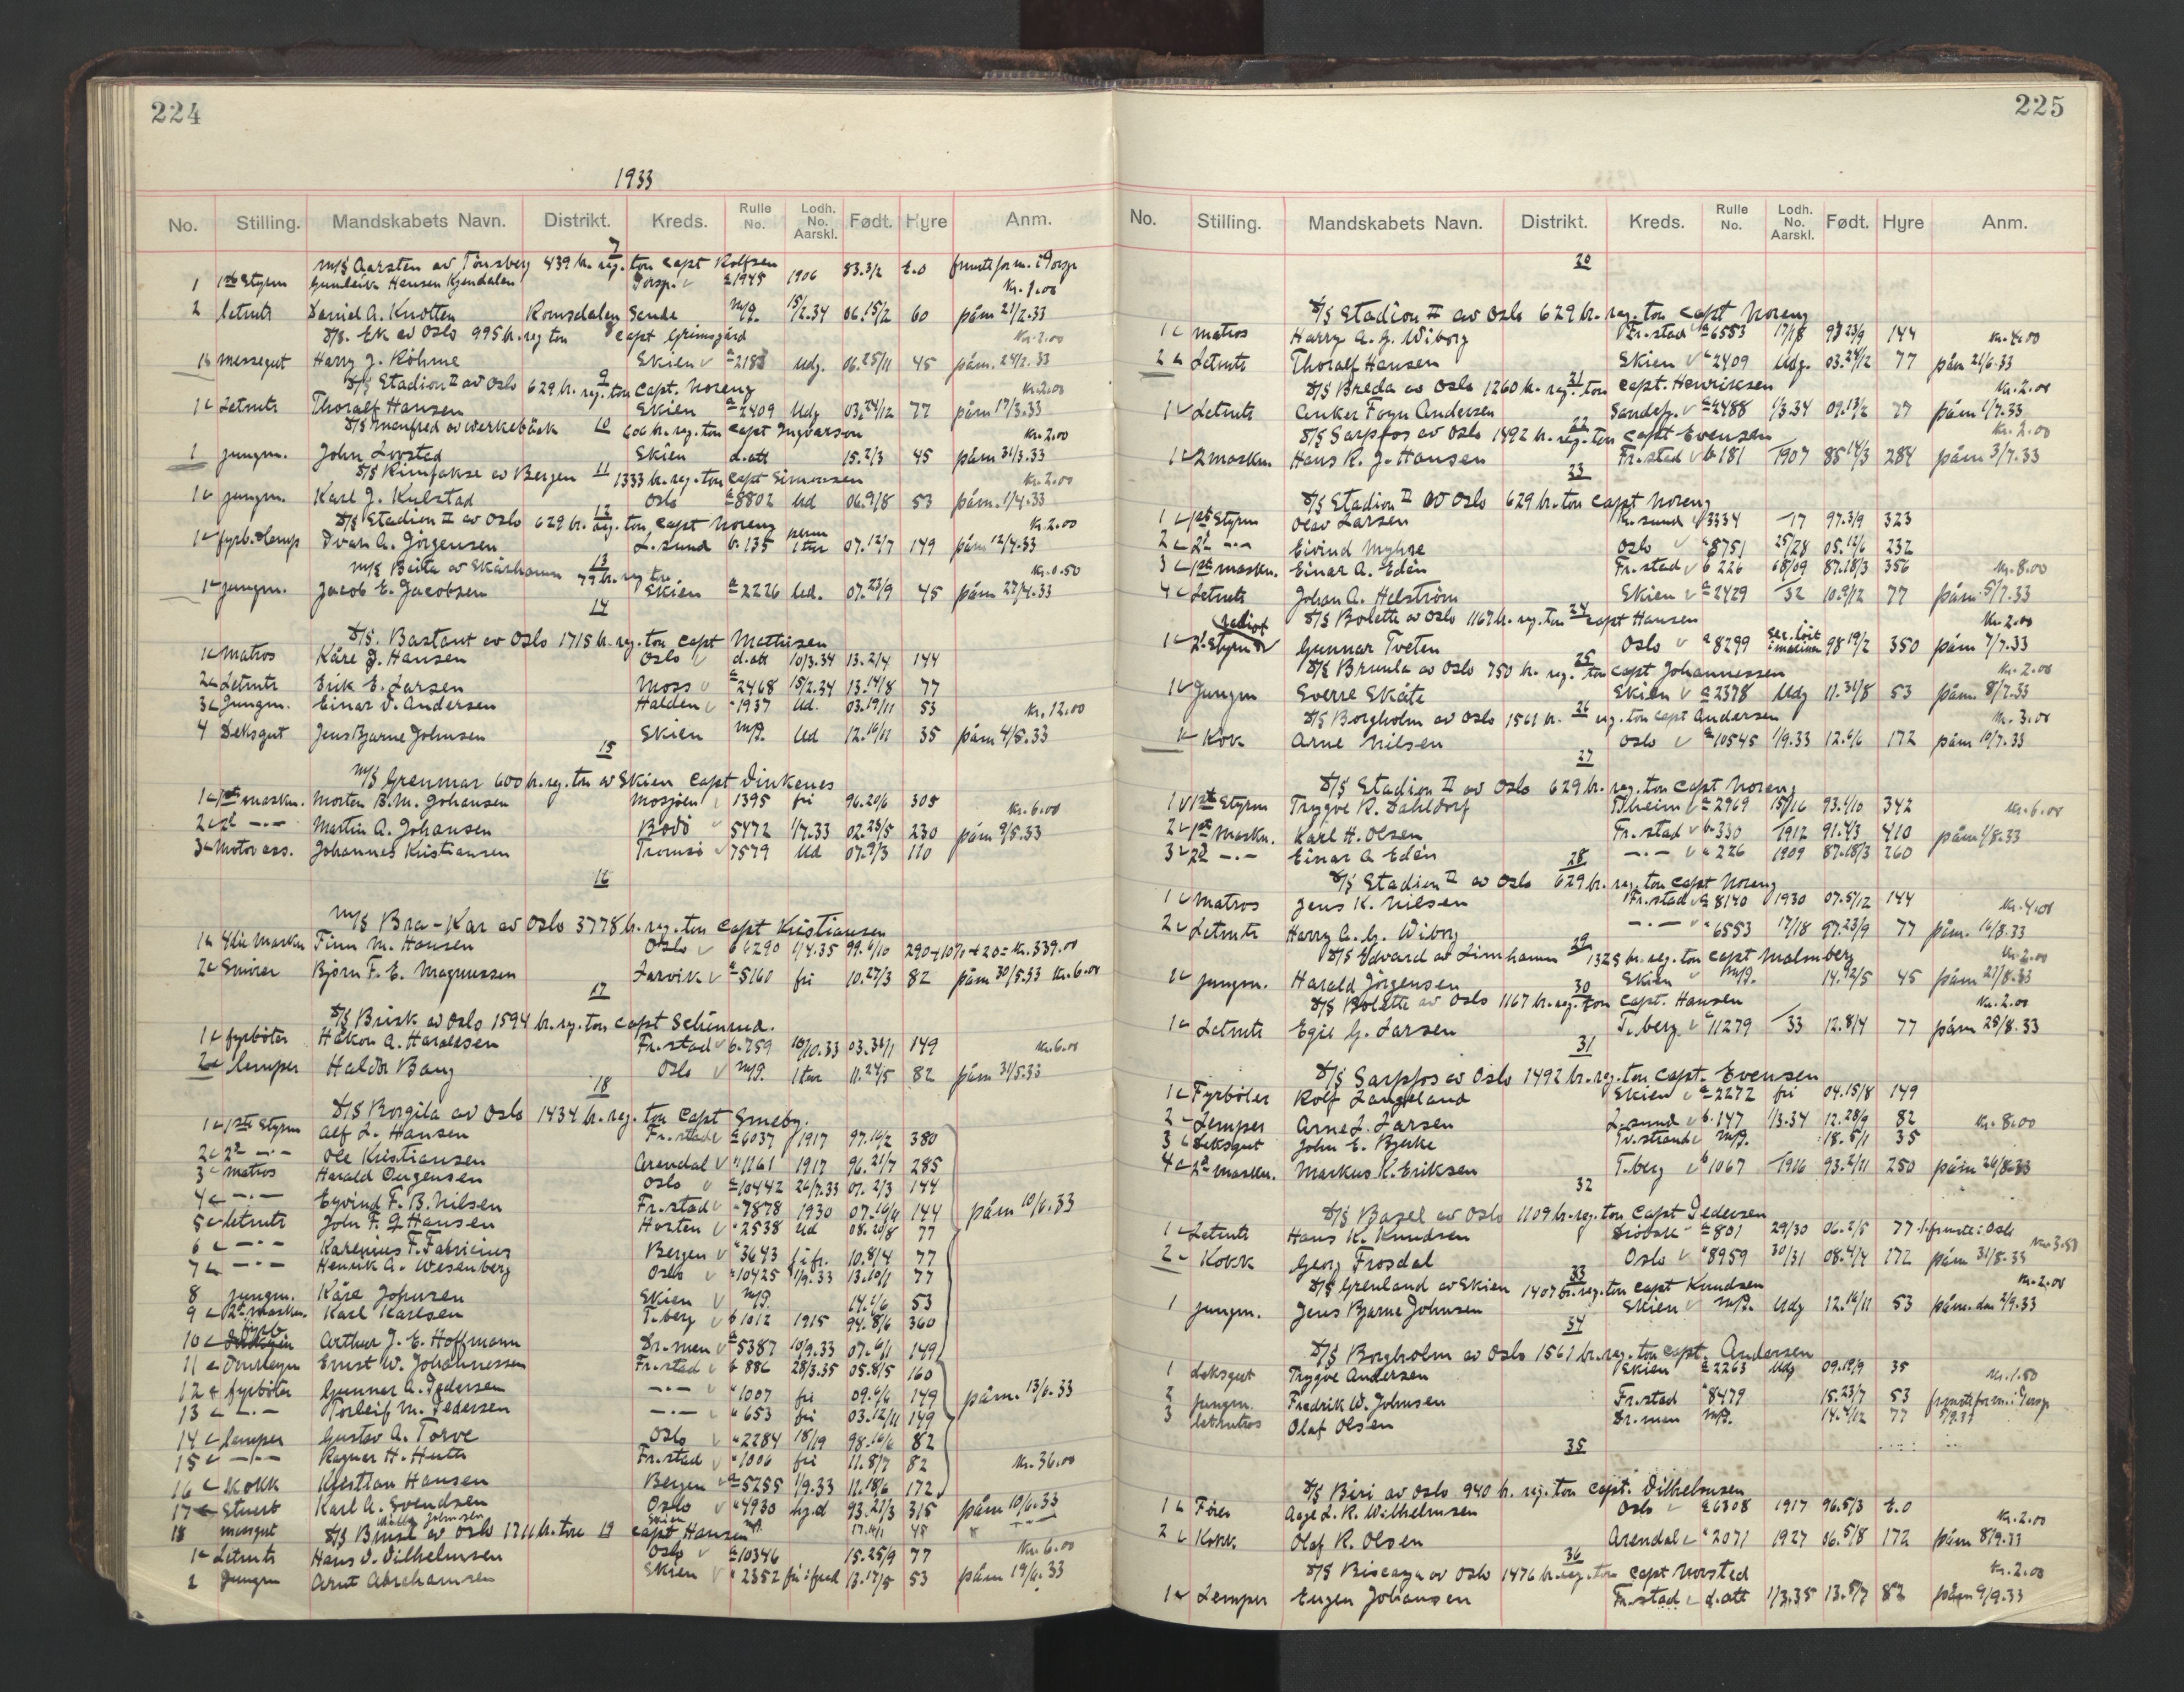 224
1933
No. Stilling. Mandskabets Navn. Distrikt. Kreds. Rulle No. Lodh. No. Aarskl. Født. Hyre Anm.
7
M/S Aarsten av Tönsberg 439 br. reg. ton Capt Rolfsen
1 1ste Styrm Gunleik Hansen Kjendalen Porsgr. a 1945 1906 83.3/2 t.o Kr. 1.00
2 Letmtr Daniel A. Knotten Romsdalen Sande m/p. 15/2.34 06.15/2 60 påm 21/2.33
8
D/S. Ek av Oslo 995 br. reg ton Capt Grimsgård Kr. 2.00
1 messegut Harry J. Röhme Skien a 2183 Udg. 06.25/11 45 påm. 24/2.33
9
D/S Stadion II av Oslo 629 br. reg. ton Capt. Noreng Kr. 2.00
1 Letmtr Thoralf Hansen Skien a 2409 Udg 03.24/12 77 påm 17/3.33
D/S Manfred av Verkebäck 10 606 br. reg. ton Capt Ingvarson Kr. 2.00
1 jungm. John Lovstad Skien d.att 15.2/3 45 påm 31/3.33
D/S Rimfakse av Bergen 11 1333 br. reg. ton Capt Simonsen Kr. 2.00
1 jungm. Karl J. Kulstad Oslo a 8802 Ud 06.9/8 53 påm. 1/4.33
12
D/S Stadion II av Oslo 629 br. reg. ton, Capt Noreng Kr. 2.00
1 fyrb. & lemp Ivar A. Jörgensen L.sund b. 135 perm 1 tur 07.12/7 149 påm 12/4.33
13
M/S Beita av Skärhamn 79 br. reg ton Kr. 0.50
1 jungm. Jacob E. Jacobsen Skien a 2226 Ud. 07.23/9 45 påm 27/4.33
14
D/S. Bastant av Oslo 1715 br. reg. ton Capt Mathisen
1 Matros Kåre J. Hansen Oslo d.att 10/3.34 13.2/4 144
2 Letmtr Erik E. Larsen Moss a 2468 15/2.34 13.14/8 77
3 Jungm. Einar V. Andersen Halden " 1937 Ud. 03.19/11 53 Kr. 12.00
4 Deksgut Jens Bjarne Johnsen Skien m/p. Ud 12.16/11 35 påm 4/5.33
15
M/S Grenmar 600 br. reg. ton av Skien Capt Vinkenes
1 1ste maskn. Morten B. M. Johansen Mosjöen 1395 fri 96.20/6 305 Kr. 6.00
2 2d -"- Martin A. Johansen Bodö 5472 1/7.33 02.23/5 230 påm 9/5.33
3 Motor ass. Johannes Kristiansen Tromsö 7579 Ud 07.9/3 110
16
M/S Bra-Kar av Oslo 3778 br. reg. ton Capt Kristiansen
1 4die maskn Finn M. Hansen Oslo b 6290 1/4.35 99.6/10 290+10%+20= Kr. 339.00
2 Smörer Bjørn F. E. Magnussen Larvik a 5160 fri 10.27/3 82 påm 30/5.33 Kr. 6.00
17
D/S Brisk av Oslo 1594 br. reg. ton Capt Schinrud.
1 fyrböter Håkon A. Haraldsen Fr.stad b. 759 10/10.33 03.31/1 149 Kr. 6.00
2 lemper Haldor Bang Oslo m/p. 1 tur 11.24/5 82 påm 31/5.33
18
D/S Borgila av Oslo 1434 br. reg. ton Capt Smeby.
1 1ste Styrm Alf L. Hansen Fr.stad a 6037 1917 97.16/2 380
2 2d -"- Ole Kristiansen Arendal " 1161 1917 96.21/7 285
3 Matros Harald Jörgensen Oslo a 10442 26/7.33 07. 2/3 144
4 -"- Eyvind F. B. Nilsen Fr.stad " 7878 1930 07.16/11 144 påm 10/6.33
5 letmtr John F. G. Hansen Horten " 2538 Ud 08.20/8 77
6 -"- Karenius F. Fabricius Bergen " 3643 fifr. 10.8/4 77
7 -"- Henrik A. Wesenberg Oslo " 10425 1/9.33 13.10/1 77
8 jungm. Kåre Johnsen Skien m/p. 14.4/6 53
9 2d maskn. Karl Karlsen T.berg b 1012 1915 94.8/6 360
10 fyrb Arthur J. E. Hoffmann Dr.men a 5387 10/9.33 07.6/11 149
11 Donkeym Ernst W. Johannessen Fr.stad b 886 28/3.35 05.8/5 160
12 fyrböter Gunnar A. Pedersen -"- " 1007 fri 09.6/6 149 påm. 13/6.33
13 -"- Torleif M. Pedersen -"- " 653 fri 03.12/11 149
14 lemper Gustav A. Torve Oslo " 2284 18/19 98.16/6 82
15 -"- Ragnar H. Huth Fr.stad " 1006 fri 11.8/7 82 Kr. 36.00
16 Kokk Kristian Hansen Bergen a 5255 1/9.33 11.18/6 172
17 Stuert Karl A. Svendsen Oslo " 4930 93.21/3 315 påm 10/6.33
18 messgut Johnsen Skien m/p 17.14/1 45 " -"-
D/S Bruse av Oslo 1711 br. tons 19 Capt Hansen Kr. 6.00
1 Letmtr Hans V. Vilhelmsen Oslo a 10346 15.25/9 77
2 Jungm Arnt Abrahamsen Skien " 2352 13.17/5 53 påm 19/6.33
225
No. Stilling. Mandskabets Navn. Distrikt. Kreds. Rulle No. Lodh. No. Aarskl. Født. Hyre Anm.
20
D/S Stadion II av Oslo 629 br. reg. ton Capt Noreng
1 Matros Harry A. G. Wiborg Fr.stad a 6553 17/18 97 23/9 144 Kr. 4.00
2 Letmtr Thoralf Hansen Skien " 2409 Udg. 03.24/12 77 påm 21/6.33
21
D/S Breda av Oslo 1260 br. reg. ton Capt. Henriksen Kr. 2.00
1 Letmtr Anker Foyn Andersen Sandefj. a 2488 1/3.34 09.13/2 77 påm 1/7.33
22
D/S Sarpfos av Oslo 1492 br. reg. ton Capt Evensen Kr. 2.00
1 2 maskn. Hans R. J. Hansen Fr.stad b 181 1907 85 14/3 284 påm 3/7.33
23
D/S Stadion II av Oslo 629 br. ton Capt Noreng
1 1ste Styrm Olav Larsen K.sund 3334 17 97.3/9 323
2 2d -"- Eivind Myhre Oslo a 8751 25/28 05.12/6 232
3 1ste maskn. Einar A. Edén Fr.stad b 226 68/09 87.18/3 356 Kr. 8.00
4 Letmtr Johan A. Helström Skien a 2429 32 10.9/12 77 påm 5/7.33
24
D/S Bolette av Oslo 1167 br. reg. ton Capt Hansen Kr. 2.00
1 2d Styrm Gunnar Tveten Oslo a 8299 98 19/2 350 påm 7/7.33
25
D/S Brunla av Oslo 750 br. reg. ton Capt Johannessen Kr. 2.00
1 Jungm Sverre Skåte Skien a 2378 Udg 11.31/8 53 påm. 8/7.33
26
D/S Borgholm av Oslo 1561 br. reg. ton Capt Andersen Kr. 3.00
1 Kok Arne Nilsen Oslo a 10545 1/9.33 12.6/6 172 påm 19/7.33
27
D/S Stadion II av Oslo 629 br. reg. ton Capt Noreng
1 1ste Styrm Trygve R. Dahldorf T.heim a 2969 15/16 93.1/10 342 Kr. 6.00
2 1ste Maskn. Karl H. Olsen Fr.stad b. 330 1912 91.4/3 410 påm 1/8.33
3 2d -"- Einar A Edén -"- " 226 1909 87.18/3 260
28
D/S Stadion II av Oslo 629 br. reg. ton Capt Noreng
1 Matros Jens K. Nilsen Fr.stad a 8140 1930 07.5/12 144 Kr. 4.00
2 Letmtr Harry A. G. Wiborg -"- " 6553 17/18 97.23/9 77 påm. 16/8.33
29
D/S Edvard av Limhamn 1325 br. reg. ton Capt Malmberg Kr. 2.00
1 jungm. Harald Jörgensen Skien m/p. 14.12/5 45 påm 21/8.33
30
D/S Bolette av Oslo 1167 br. reg. ton Capt. Hansen Kr. 2.00
1 Letmtr Egil G. Larsen T.berg a 11279 33 12.8/4 77 påm 25/8.33
31
D/S Sarpfos av Oslo 1492 br. reg. ton Capt. Evensen
1 Fyrböter Rolf Langeland Skien a 2272 fri 04.15/8 149
2 Lemper Arne L. Larsen L.sund b. 147 1/3.34 12.28/9 82 Kr. 8.00
3 Deksgut John E. Bjerke Tv.strand m/p. 18.5/1 35
4 2d maskn. Markus K. Eriksen T.berg b 1067 1916 93.2/11 250 påm 26/8.33
32
D/S Basel av Oslo 1109 br. reg. ton Capt Pedersen
1 Letmtr Hans K. Knudsen Dröbak a 801 29/30 06.2/5 77 Kr. 3.50
2 Kokk Georg Frosdal Oslo " 8959 30/31 08.4/4 172 påm 31/8.33
33
D/S Grenland av Skien 1407 br. reg. ton Capt Knudsen Kr. 2.00
1 jungm. Jens Bjarne Johnsen Skien m/p. Udg 12.16/11 53 påm. den 2/9.33
34
D/S Borgholm av Oslo 1561 br. reg. ton Capt. Andersen
1 deksgut Trygve Andersen Skien a 2263 Udg 09.19/9 35 Kr. 1.50
2 jungm. Fredrik W. Johnsen Fr.stad " 8479 15.23/7 53
3 letmatros Olaf Olsen Dr.men m/p. 14.4/12 77 5/9.33
35
D/S Biri av Oslo 940 br. reg. ton Capt. Vilhelmsen
1 Förer Aage L. R. Wilhelmsen Oslo a 6308 1917 96.5/3 t.o Kr. 2.00
2 Kokk Olaf R. Olsen Arendal " 2071 1927 06.5/8 172 påm 8/9.33
36
D/S Biscaya av Oslo 1476 br. reg. ton Capt Norsted Kr. 2.00
1 Lemper Eugen Johansen Fr.stad d.att 1/3.35 13.5/7 82 påm 9/9.33